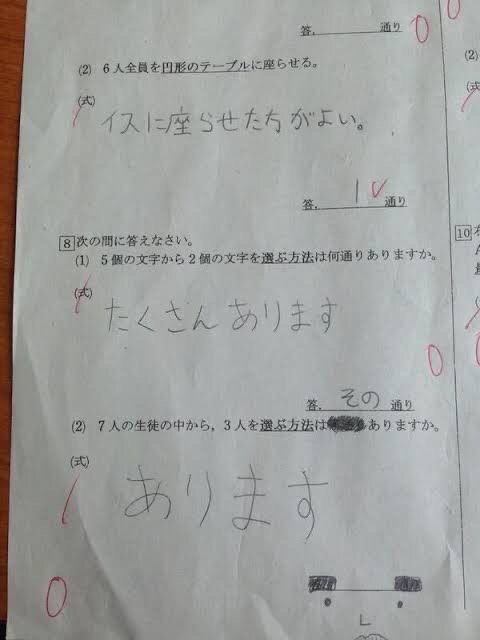 答. 通り 0
(2) 6人全員を円形のテーブルに座らせる。
(式)
イスに座らせた方がよい。
答. 1 通り
8 次の問に答えなさい。
(1) 5個の文字から2個の文字を選ぶ方法は何通りありますか。
(式)
たくさんあります
0
答. その 通り
(2) 7人の生徒の中から,3人を選ぶ方法は ありますか。
(式)
あります
0
L
0
(2)
(式
10
A